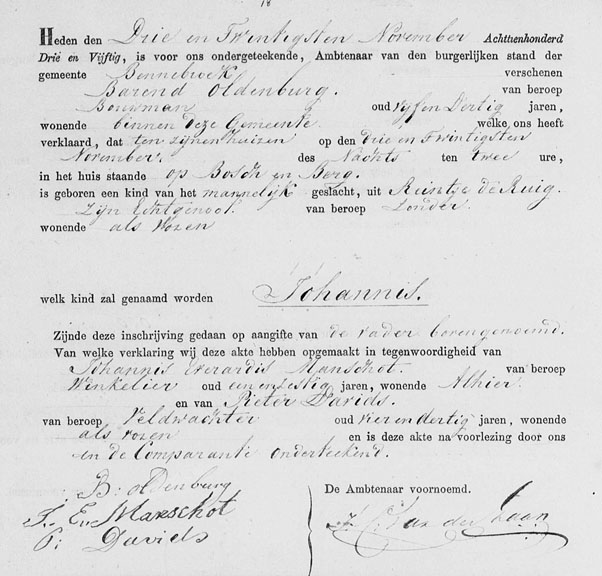 18
Heden den Drie en Twintigsten November Achttienhonderd
Drie en Vijftig, is voor ons ondergeteekende, Ambtenaar van den burgerlijken stand der
gemeente Bennebroek verschenen
Barend Oldenburg. van beroep
Bouwman oud vyf en Dertig jaren,
wonende binnen deze Gemeente welke ons heeft
verklaard, dat ten zijnen huizen op den drie en Twintigsten
November. des Nachts ten twee ure,
in het huis staande op Bosch en Berg.
is geboren een kind van het mannelijk geslacht, uit Reintje de Ruig.
zijn Echtgenoot. van beroep zonder.
wonende als voren
welk kind zal genaamd worden Johannis.
Zijnde deze inschrijving gedaan op aangifte van de vader bovengenoemd.
Van welke verklaring wij deze akte hebben opgemaakt in tegenwoordigheid van
Johannis Everardis Manschot. van beroep
Winkelier oud een en zestig jaren, wonende Alhier
en van Pieter Davids.
van beroep Veldwachter oud vier en dertig jaren, wonende
als voren en is deze akte na voorlezing door ons
en de Comparante onderteekend.
B: oldenburg
J. E. Manschot
P: Davids
De Ambtenaar voornoemd.
Van der Laan